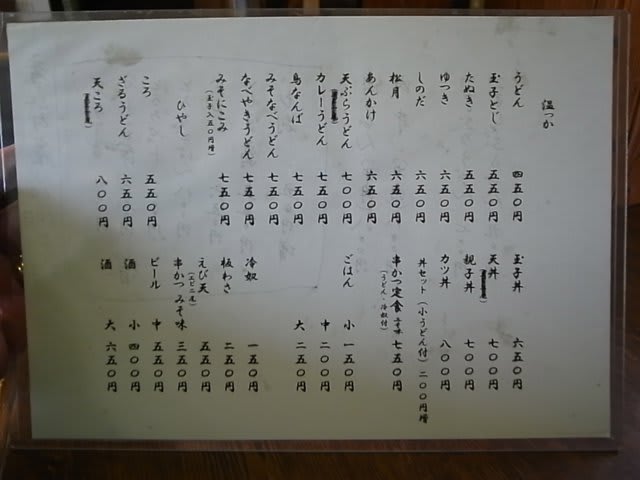 温っか
うどん 四五〇円
玉子とじ 五五〇円
たぬき 五五〇円
ゆつき 六五〇円
しのだ 六五〇円
松月 六五〇円
あんかけ 六五〇円
天ぷらうどん 七〇〇円
カレーうどん 七五〇円
鳥なんば 七五〇円
みそなべうどん 七五〇円
なべやきうどん 七五〇円
みそにこみ 七五〇円
(玉子入五〇円増)
ひやし
ころ 五五〇円
ざるうどん 六五〇円
天ころ 八〇〇円
玉子丼 六五〇円
天丼 七〇〇円
親子丼 七〇〇円
カツ丼 八〇〇円
丼セット(小うどん付)二〇〇円増
串かつ定食 七五〇円
(うどん・冷奴付)
ごはん 小 一五〇円
中 二〇〇円
大 二五〇円
冷奴 一五〇円
板わさ 二五〇円
えび天 五五〇円
(エビ二尾)
串かつみそ味 三五〇円
ビール 中 五五〇円
酒 小 四〇〇円
酒 大 六五〇円